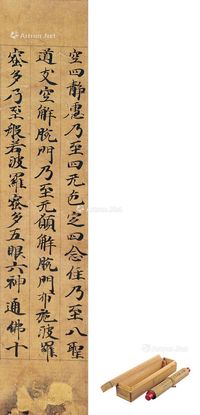 空四靜慮乃至四无色定四念住乃至八聖
道支空解脫門乃至无願解脫門布施波羅
蜜多乃至般若波羅蜜多五眼六神通佛十